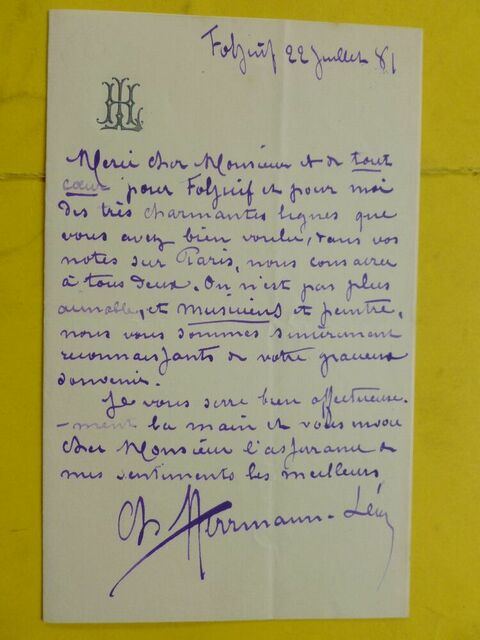 Foljuif 22 Juillet 81
HL
Merci cher Monsieur et de tout
cœur pour Foljuif et pour moi
des très charmantes lignes que
vous avez bien voulu, dans vos
notes sur Paris, nous consacrer
à tous deux. On n'est pas plus
aimable, et musicien et peintre,
nous vous sommes sincèrement
reconnaissants de votre gracieux
souvenir.
Je vous serre bien affectueuse-
-ment la main et vous envoie
cher Monsieur l'assurance de
mes sentiments les meilleurs
Ch Herrmann-Léon